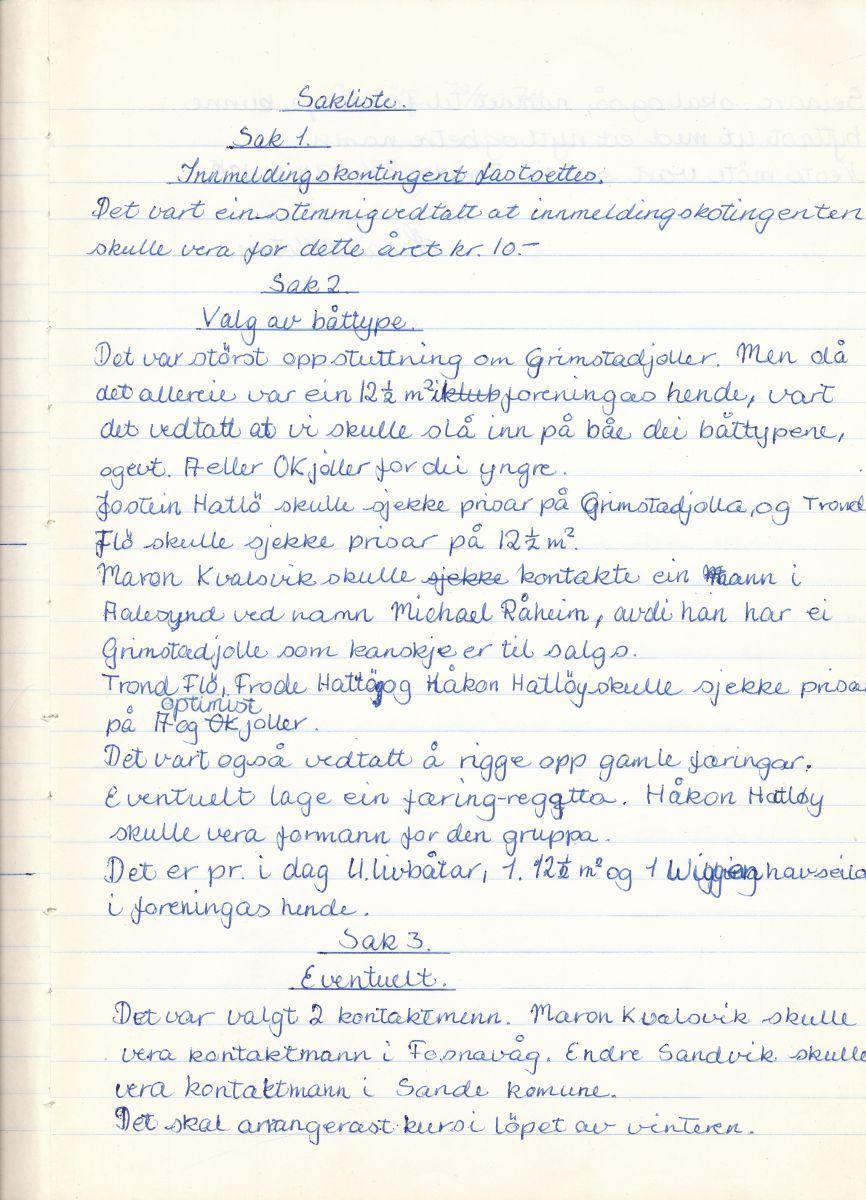 Sakliste.
Sak 1.
Innmeldingskontingent fastsettes.
Det vart ein-stemmig vedtatt at innmeldingskotingenten
skulle vera for dette året kr. 10.-
Sak 2.
Valg av båttype.
Det var störst oppstuttning om Grimstadjoller. Men då
det allereie var ein 12½ m² i klub foreningas hende, vart
det vedtatt at vi skulle slå inn på båe dei båttypene,
og evt. A eller OK joller for dei yngre.
Jostein Hatlö skulle sjekke prisar på Grimstadjolla, og Trond
Flö skulle sjekke prisar på 12½ m².
Maron Kvalsvik skulle sjekke kontakte ein mann i
Aalesund ved namn Michael Råheim, avdi han har ei
Grimstadjolle som kanskje er til salgs.
Trond Flö, Frode Hatlöy og Håkon Hatlöy skulle sjekke prisa
optimist
på A og OK joller.
Det vart også vedtatt å rigge opp gamle færingar.
Eventuelt lage ein færing-reggtta. Håkon Hatløy
skulle vera formann for den gruppa.
Det er pr. i dag 4. livbåtar, 1. 12½ m² og 1 havseila
i foreningas hende.
Sak 3.
Eventuelt.
Det var valgt 2 kontaktmenn. Maron Kvalsvik skulle
vera kontaktmann i Fosnavåg. Endre Sandvik skulle
vera kontaktmann i Sande komune.
Det skal arrangerast kurs i löpet av vinteren.